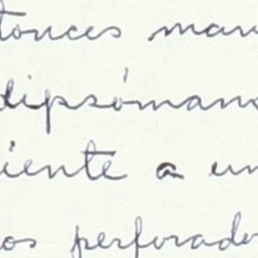 tonces man
dipsómano
iente a un
os perforado